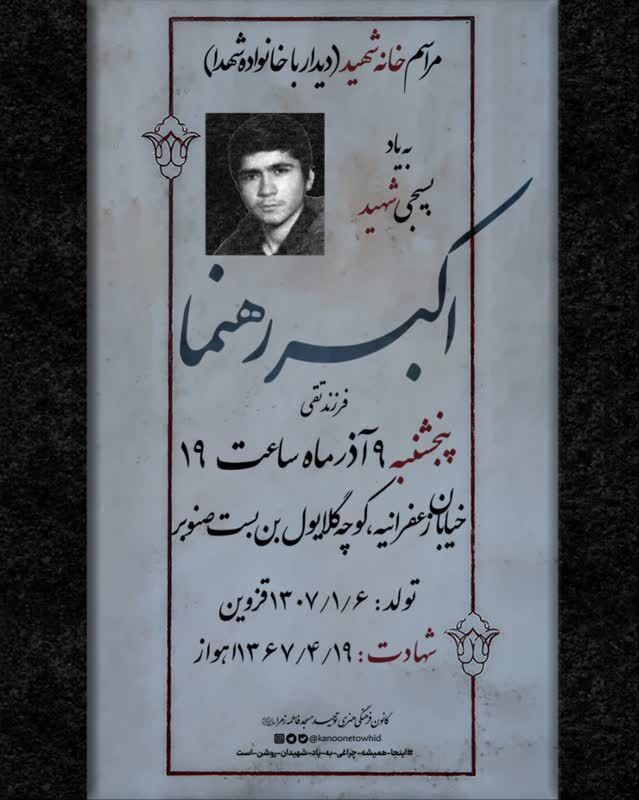 مراسم خانه شهید (دیدار با خانواده شهدا)
به یاد
بسیجی شهید
اکبر رهنما
فرزند تقی
پنجشنبه ۹ آذر ماه ساعت ۱۹
خیابان زعفرانیه، کوچه گلایول بن بست صنوبر
تولد: ۱۳۰۷/۱/۶ قزوین
شهادت: ۱۳۶۷/۴/۱۹ اهواز
کانون فرهنگی هنری توحید مسجد فاطمه زهرا
@kanoonetowhid
#اینجا-همیشه-چراغی-به-یاد-شهیدان-روشن-است